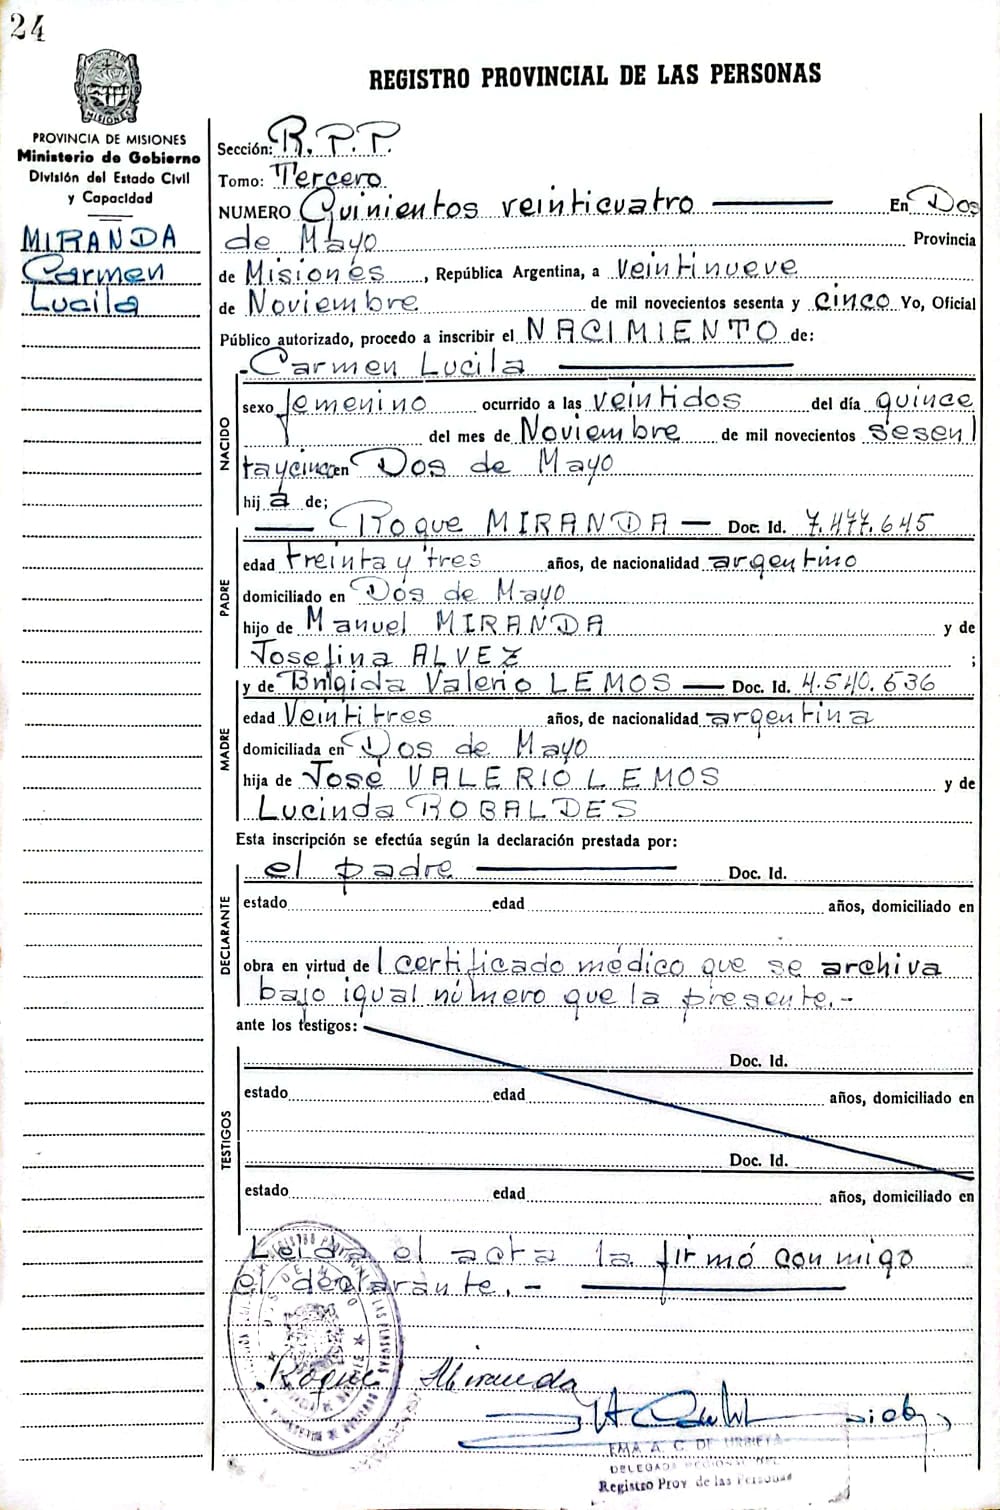 24
REGISTRO PROVINCIAL DE LAS PERSONAS
PROVINCIA DE MISIONES
Ministerio de Gobierno
División del Estado Civil
y Capacidad
MIRANDA
Carmen
Lucila
Sección: R.P.P.
Tomo: Tercero
NUMERO Quinientos veinticuatro En Dos
de Mayo Provincia
de Misiones, República Argentina, a veintinueve
de Noviembre de mil novecientos sesenta y cinco Yo, Oficial
Público autorizado, procedo a inscribir el NACIMIENTO de:
Carmen Lucila
NACIDO
sexo femenino ocurrido a las veintidos del día quince
del mes de Noviembre de mil novecientos sesen
taycinco en Dos de Mayo
hij a de;
PADRE
Roque MIRANDA — Doc. Id. 7.477.645
edad treinta y tres años, de nacionalidad argentino
domiciliado en Dos de Mayo
hijo de Manuel MIRANDA y de
Josefina ALVEZ ;
MADRE
y de Brigida Valerio LEMOS — Doc. Id. 4.540.636
edad Veintitres años, de nacionalidad argentina
domiciliada en Dos de Mayo
hija de José VALERIO LEMOS y de
Lucinda ROBALDES
Esta inscripción se efectúa según la declaración prestada por:
DECLARANTE
el padre Doc. Id.
estado edad años, domiciliado en
obra en virtud de l certificado médico que se archiva
bajo igual número que la presente.-
ante los testigos:
TESTIGOS
Doc. Id.
estado edad años, domiciliado en
Doc. Id.
estado edad años, domiciliado en
Leída el acta la firmó conmigo
el declarante.-
Roque Miranda
EMA A. C. DE URRIETA
DELEGADA
Registro Prov de las Personas